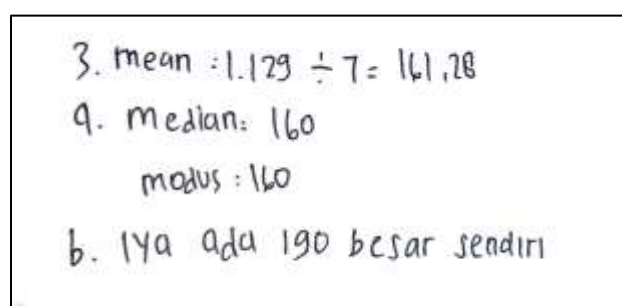 3. mean : 1.129 ÷ 7 = 161,28
a. median : 160
modus : 160
b. Iya ada 190 besar sendiri